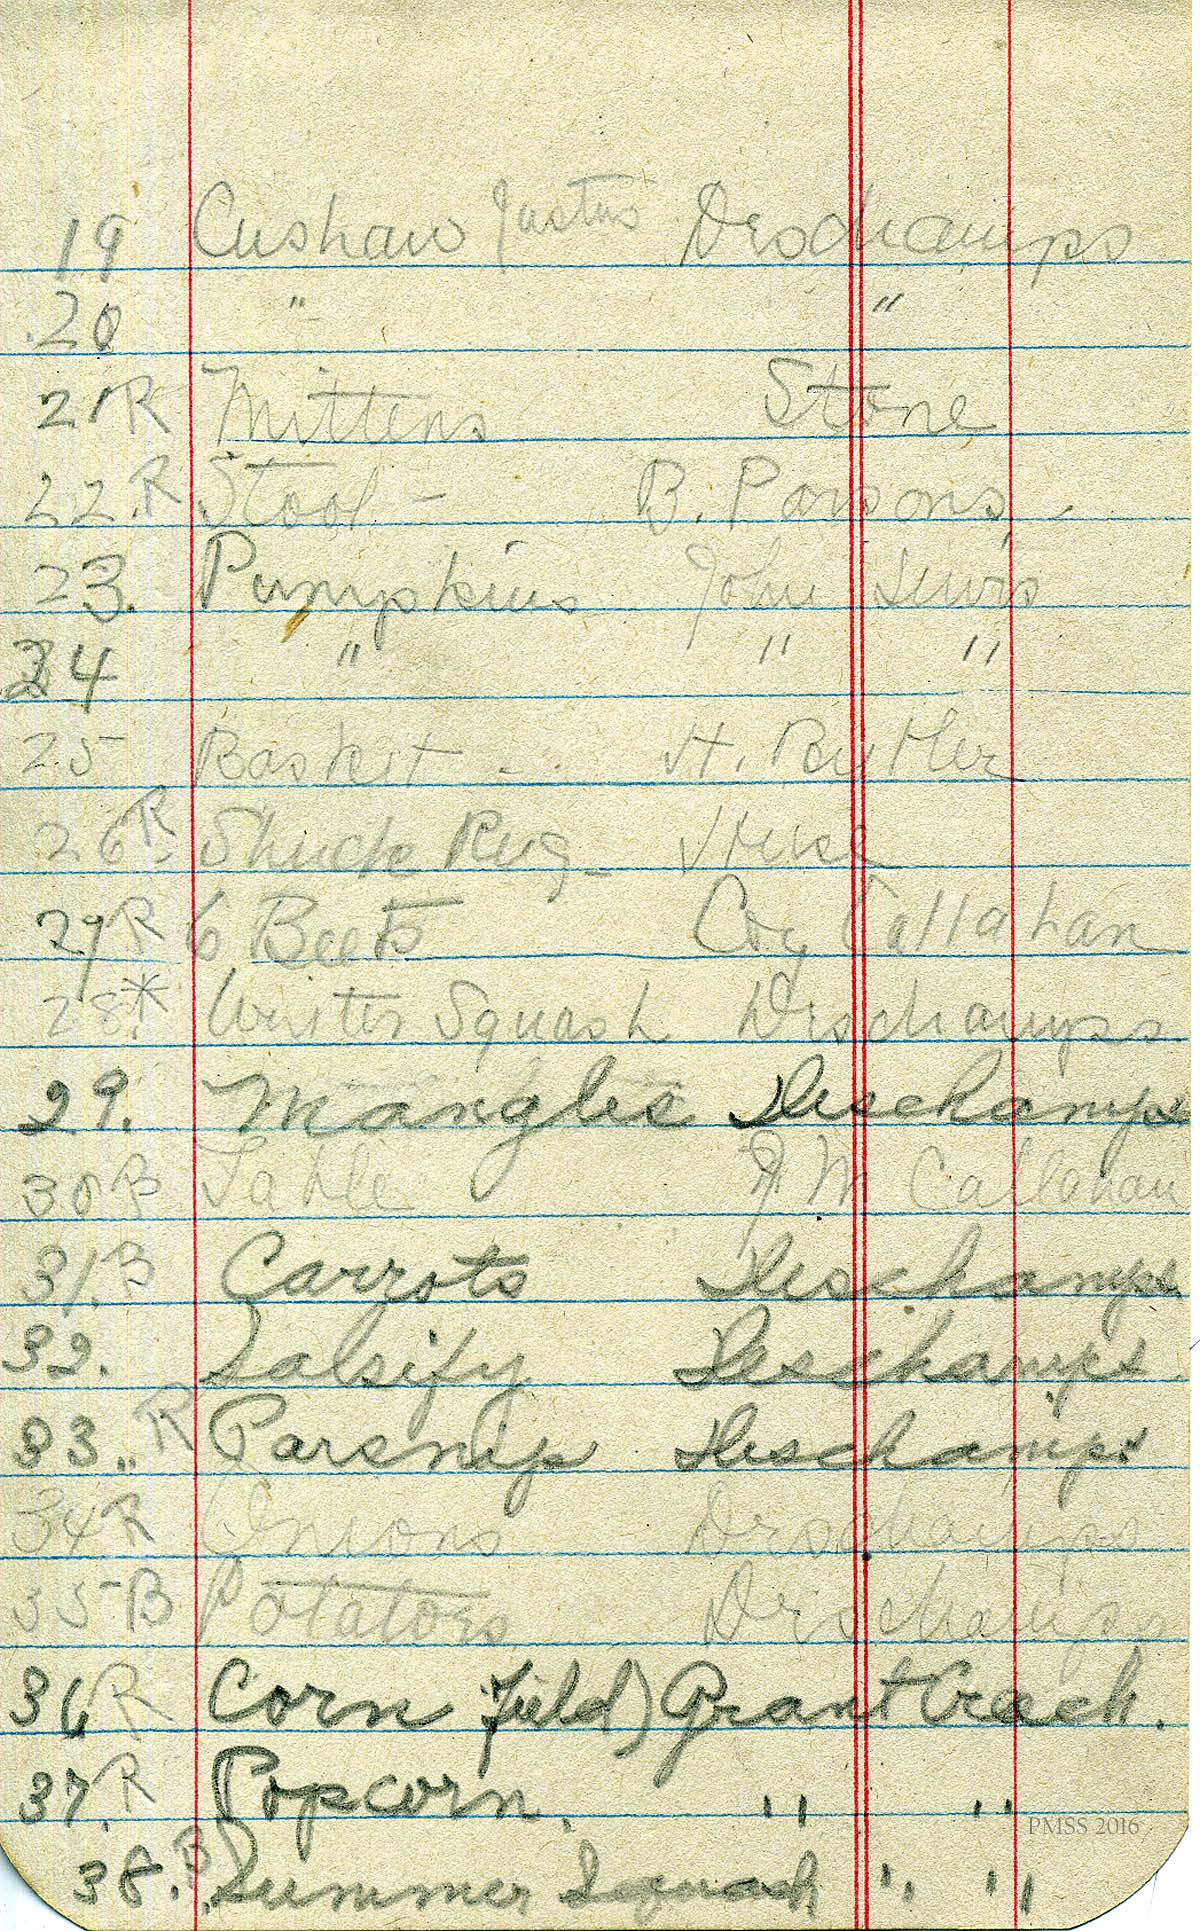 19 Cushaw Justus Deschamps
20 " "
21 R Mittens Stone
22. R Stool - B. Parsons, -
23. Pumpkins John Lewis
24 " " "
25 Basket - H. Butler
26 R. Shuck Rug -
27 R 6 Beets Coy Callahan
28.* Winter Squash Deschamps
29. Mangles Deschamps
30 B Table J M Callahan
31. B Carrots Deschamps
32. Salsify Deschamps
33.. R Parsnip Deschamps
34 R Onions Deschamps
35 B Potatoes Deschamps
36 R Corn Field) Grant Creech.
37. R Popcorn. " "
PMSS 2016
38. B Summer Squash " "